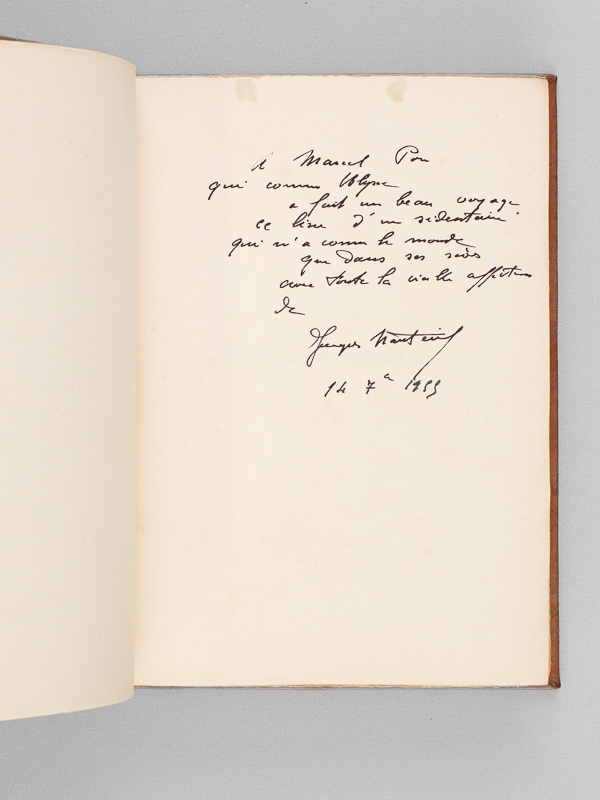 à Marcel Pon
qui comme Ulysse
a fait un beau voyage
ce livre d'un sédentaire
qui n'a connu le monde
que dans ses rêves
avec toute la vieille affection
de
Georges
14 7e 1955